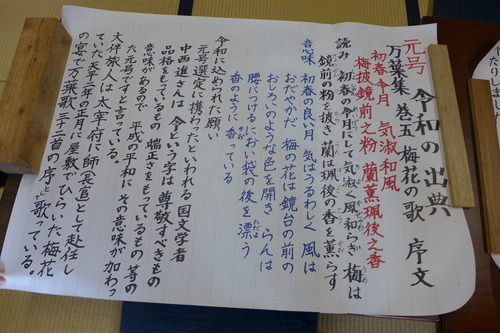 元号 令和の出典
万葉集 巻五 梅花の歌 序文
初春令月 気淑和風
梅披鏡前之粉 蘭薫珮後之香
読み 初春の令月にして気淑く風和らぎ 梅は
鏡前の粉を披き 蘭は珮後の香を薫らす
意味 初春の良い月 気はうるわしく 風は
おだやかだ 梅の花は鏡台の前の
おしろいのような色を開き らんは
腰につけるにおい袋の後を漂う
香のように香っている
令和に込められた願い
元号選定に携わったといわれる国文学者
中西進さんは 令という字は尊敬すべきもの
品格をもっているもの 端正さをもっているもの 等の
意味があるので 平成の平和に その意味が加わっ
た元号ですと言っている。
大伴旅人は太宰府に師(長官)として赴任し
ていた天平二年の正月に屋敷でひらいた梅花
の宴で万葉歌三十二首の序として歌っている。